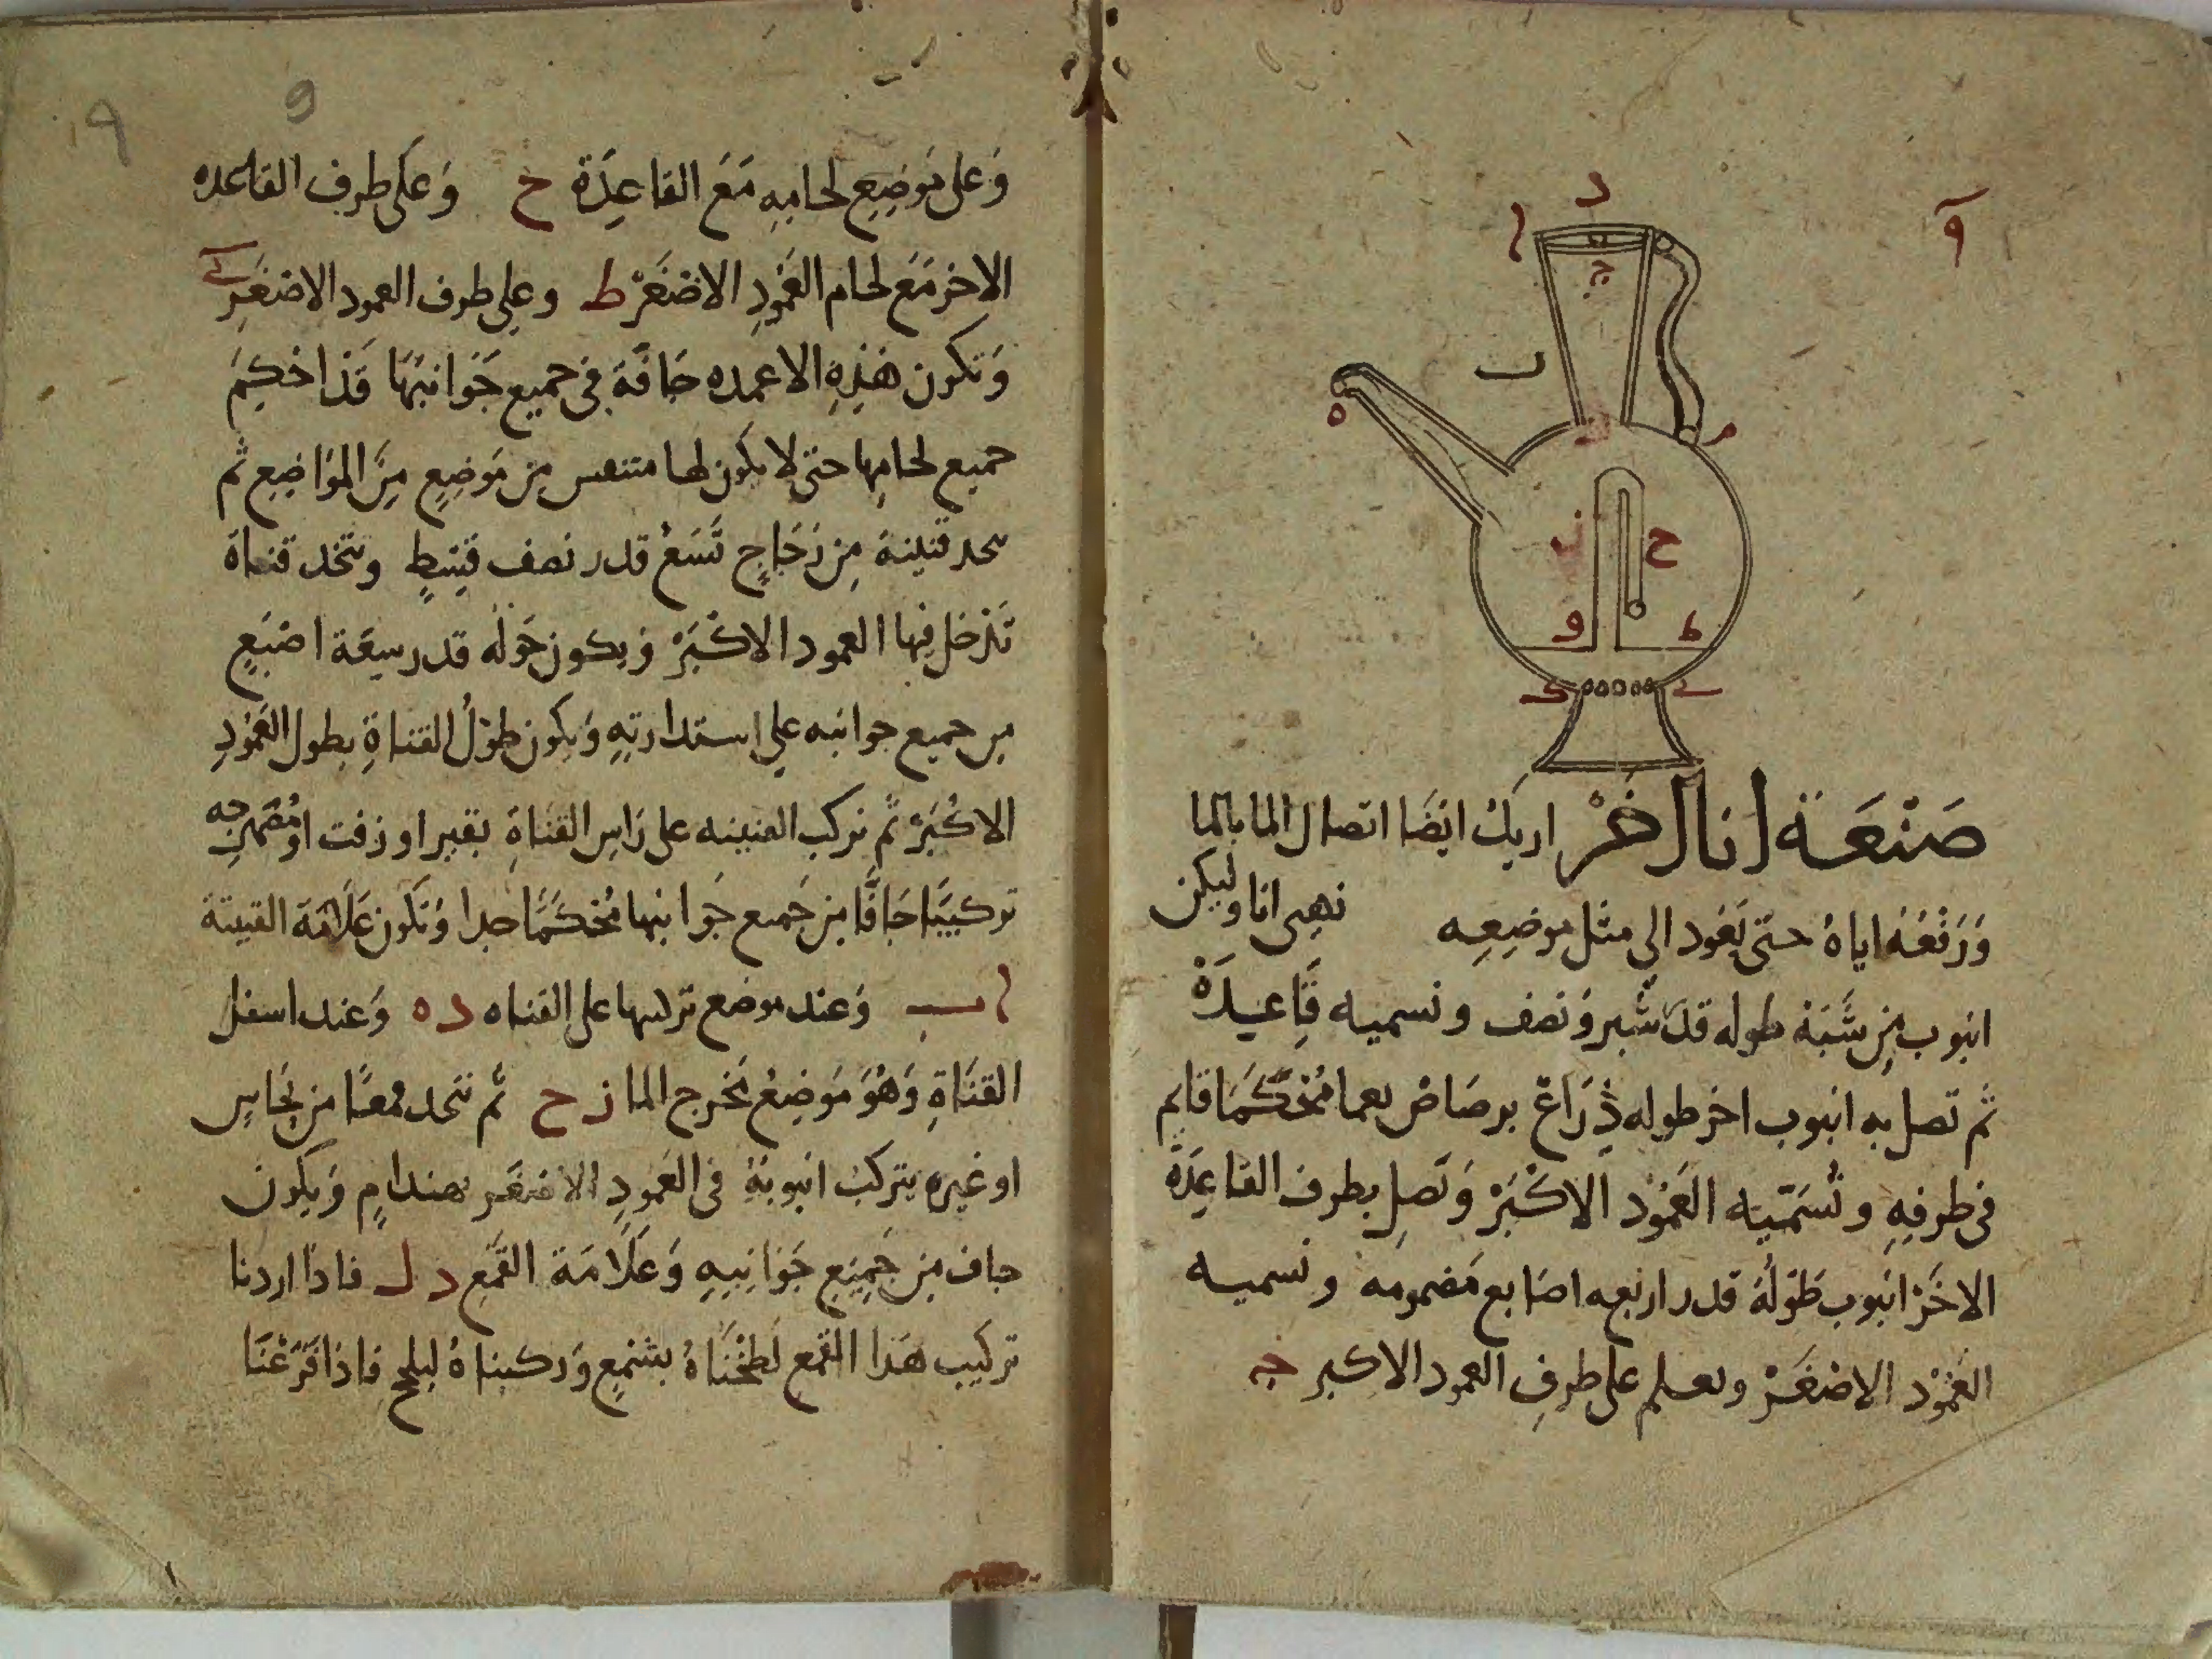 و
د
ا
ج
ب
ه
ز
م
ح
و
ط
ك
ي
صَنْعَة انا اخَرْ اريك ايضًا اتصال الما بالما
وَرَفْعُهُ اياهُ حتى يَعُود الى مثل موضِعِه نهيى انا وليكن
انبوب مِن شَبَه طوله قدر شبر وَنصف ونسميه قاعِدَةْ
ثم تصل به انبوب اخر طوله ذِرَاعْ برصاص مُحْكَمًا قايم
فى طرفِهِ ونُسَمّيه العَمُود الاكْبَرْ وَتَصِل بطرف القاعِدَة
الاخَرْ انبوب طَوْلُهُ قدر اربعه اصَابع مَضمومه ونسميه
العَمُوْد الاصْغَرْ ونعلم على طرفِ العمود الاكبر ج
9
وَعلى مَوضِعِ لحامِهِ مَعَ القاعِدَة ح وَعَلى طرف القاعده
الاخر مَعَ لحام العَمُودِ الاصْغَرْ ط وعلى طرف العمود الاصْغَرِ ي
وَتكون هَذِهِ الاعمده جَافَّة فى جميع جَوَانبهَا قد احكِمَ
جميع لحامِها حتى لا يكون لها متنفس مِن مَوضِعٍ مِنَ المَوَاضِعِ ثم
نتخذ قنينة مِن زجَاجٍ تَسَعُ قدر نصف قِسْطٍ ونتخذ قناة
تَدْخل فيها العمود الاكْبَرْ وَيكون حَوْلَه قدر سِعَة اصْبَعٍ
من جميع جوانبه على استدارتِهِ وَيكون طوْلُ القناةِ بطول العَمُوْدِ
الاكْبَرْ ثم نركب القنينه على رَاسِ القَنَاةِ بقير او زفت او
تركيبًا جَافًّا مِن جَميع جَوانبها مُحْكَمًا جدا وَتكون عَلامَة القنينة
ا ب وَعند موضع تركيبها على القناه د ه وَعند اسفل
القَنَاةِ وَهُوَ مَوضِعُ مَخْرج الما ز ح ثم نتخذ قمعًا من نُحَاسٍ
او غيره يتركب انبوبهُ فى العَمُودِ الاصْغَر بهندامٍ وَيكون
جاف مِن جَمِيْعِ جَوَانِبِهِ وَعَلَامَة القَمْعِ د ل فاذا اردنا
تركيب هَذا القمع لَطَخْنَاهُ بشمْعٍ وَركبناهُ فاذا فَرَغْنَا